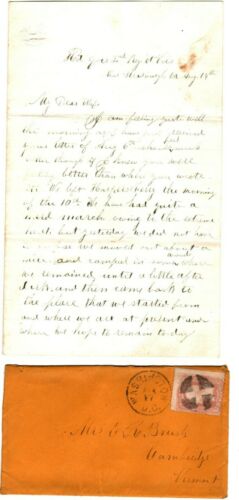 Hd Qrs 2nd Regt Vt Vols
Aug 14th
My Dear Wife
I am feeling quite well
this morning as I have just received
your letter of Aug 6th
me though if I knew you were
feeling better than when you wrote
it. We left the morning
of the 10th We have had quite a
hard march owing to the extreme
heat but yesterday we did not have
we moved out about a
mile and camped in some woods where
we remained until a little after
dark and then came back to
the place that we started from
and where we are at present and
where we hope to remain today
WASHINGTON
D.C.
Mrs E. A. Brush
Cambridge
Vermont